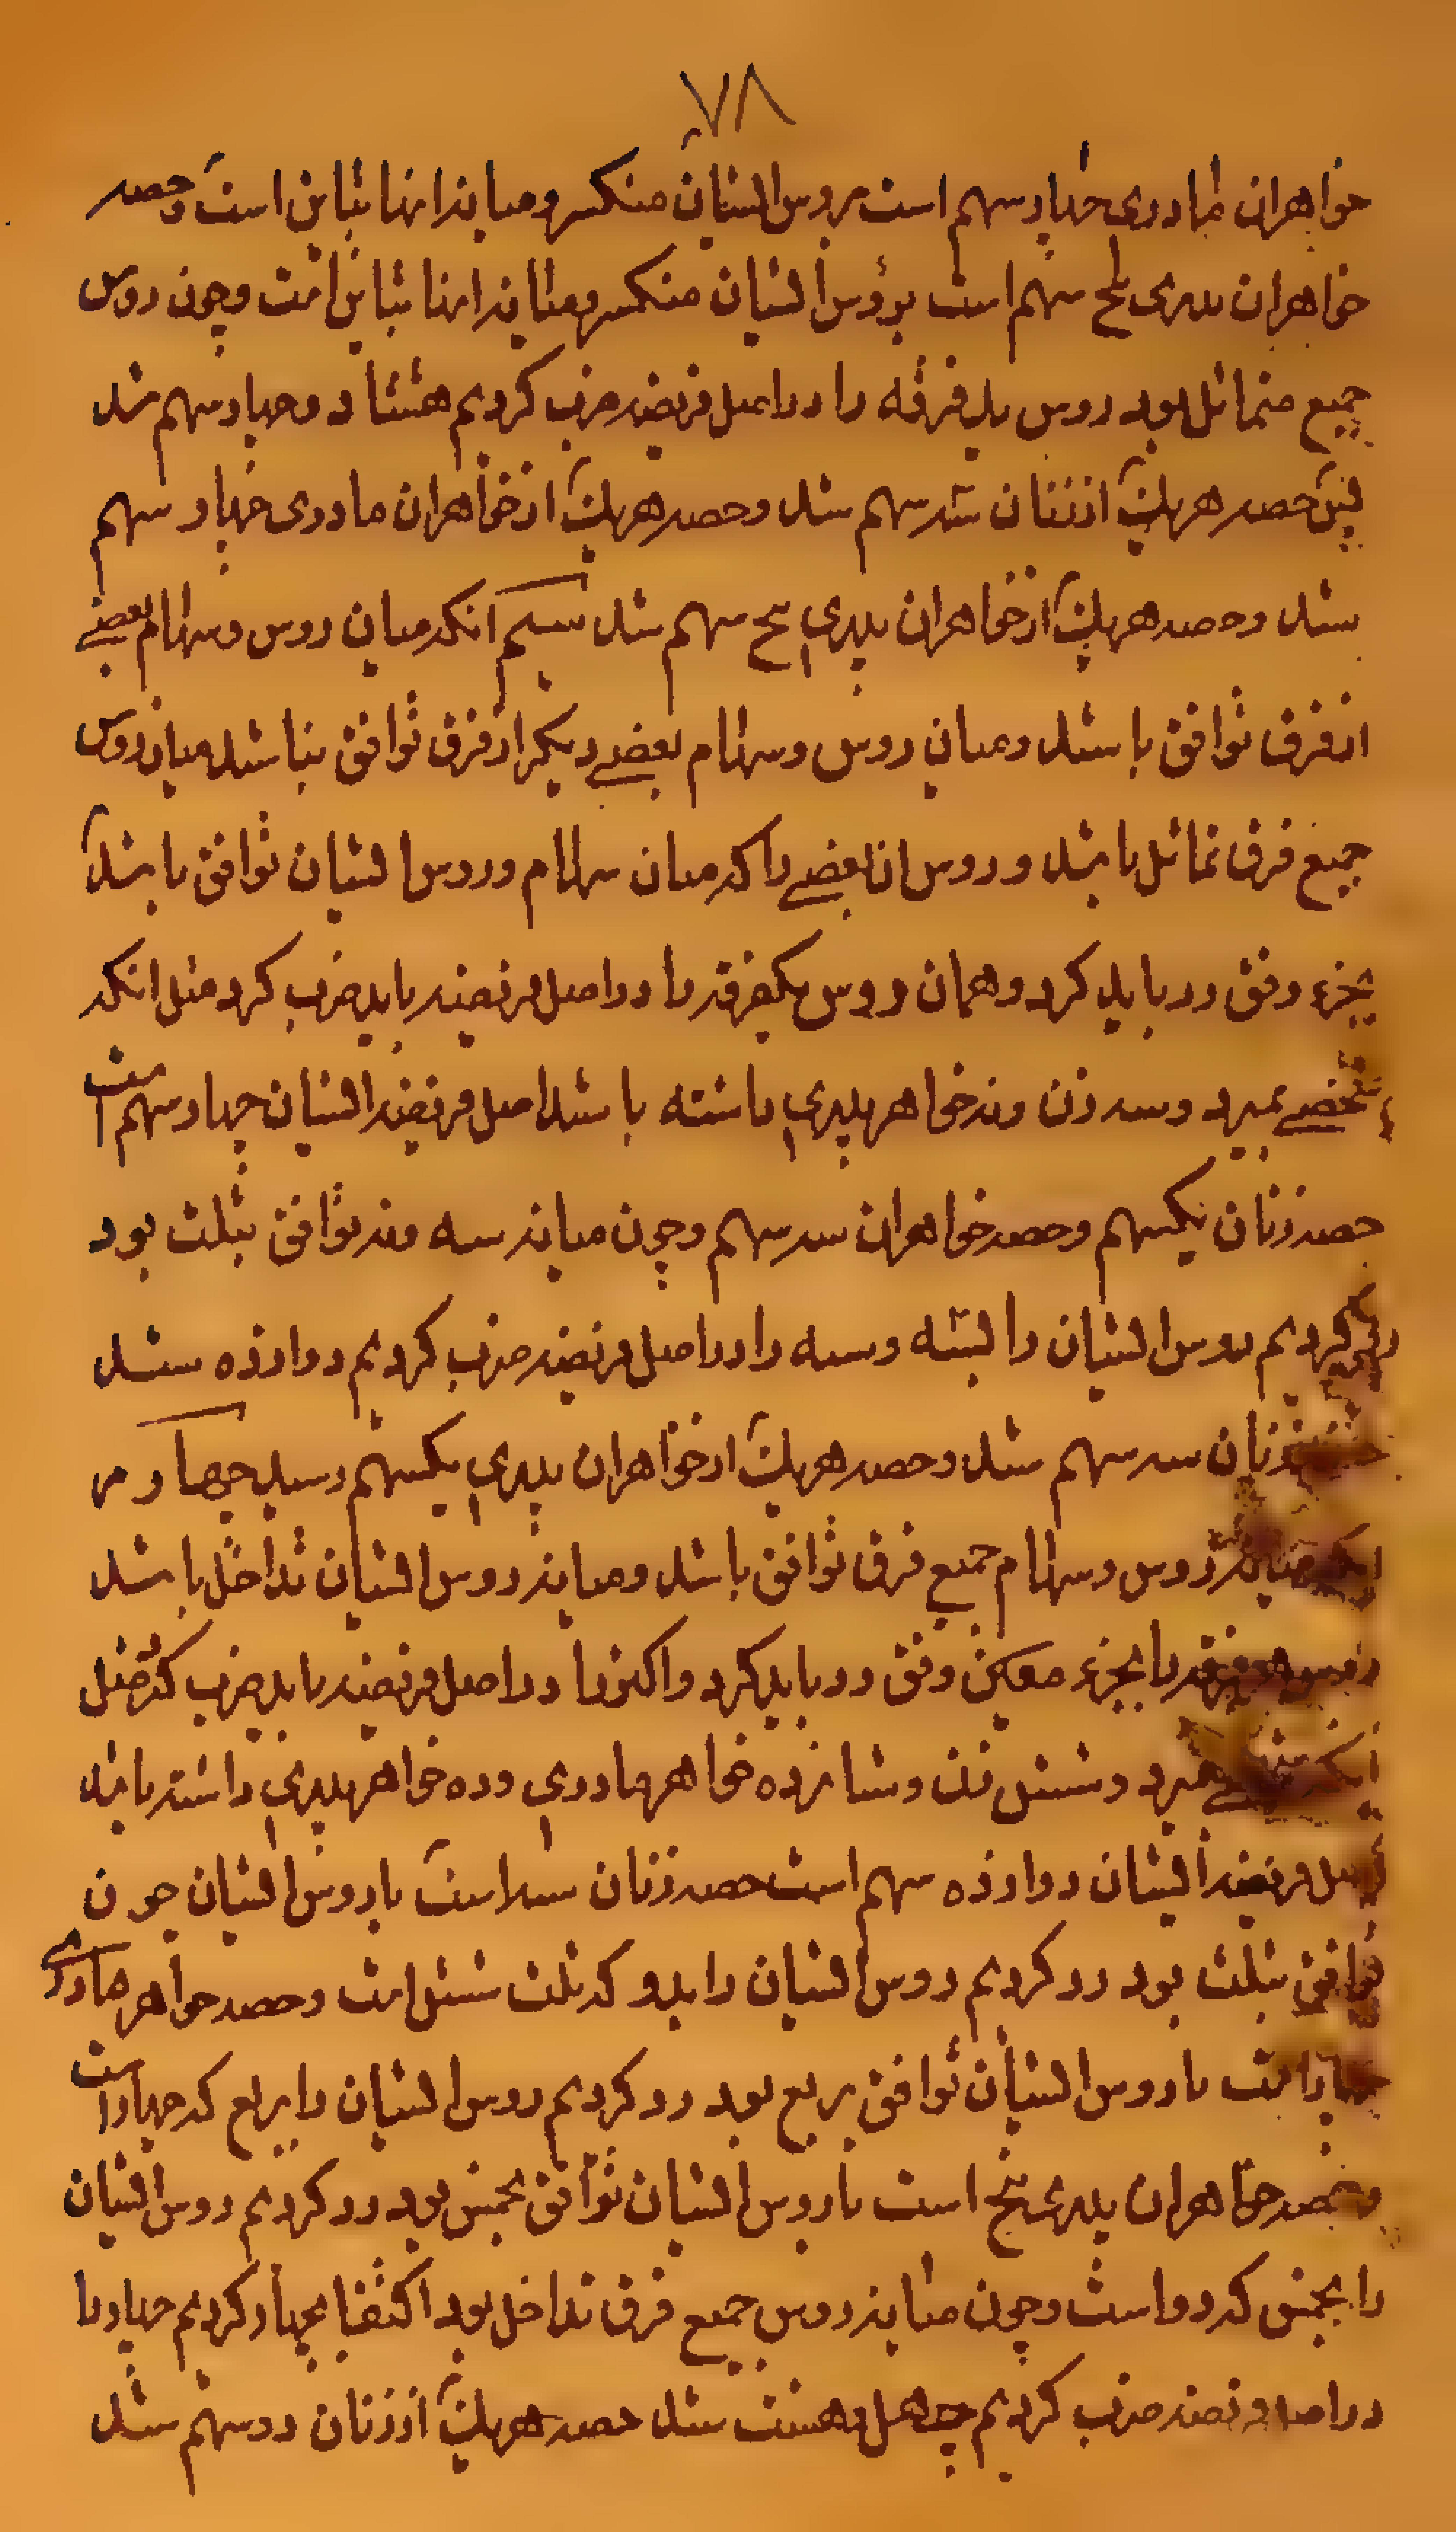 ۷۸
خواهران مادری چهار سهم است بروس ایشان منکسر و میانه انها تباین است و حصه
خواهران پدری پنج سهم است برؤس ایشان منکسر و میانه انها تباین است و چون روس
جمیع متماثل بود روس یک فرقه را در اصل فریضه ضرب کردیم هشتاد و چهار سهم شد
پس حصه هر یک از زنان سه سهم شد و حصه هر یک از خواهران مادری چهار سهم
شد و حصه هر یک از خواهران پدری پنج سهم شد سیم انکه میان روس و سهام بعضی
از فرق توافق باشد و میان روس و سهام بعضی دیکر از فرق توافق نباشد میان روس
جمیع فرق تماثل باشد و روس ان بعضی را که میان سهام و روس ایشان توافق باشد
بجزء وفق رد باید کرد و همان روس یکفرقه را در اصل فریضه باید ضرب کرد مثل انکه
شخصی بمیرد و سه زن و نه خواهر پدری داشته باشد اصل فریضه ایشان چهار سهم است
حصه زنان یکسهم و حصه خواهران سه سهم و چون میانه سه و نه توافق بثلث بود
رد کردیم روس ایشان را بسه و سه را در اصل فریضه ضرب کردیم دوازده شد
زنان سه سهم شد و حصه هر یک از خواهران پدری یکسهم رسید چهارم
انکه میانه روس و سهام جمیع فرق توافق باشد و میانه روس ایشان تداخل باشد
روس هر فرقه را بجزء معین وفق رد باید کرد و اکثر را در اصل فریضه باید ضرب کرد مثل
انکه شخصی بمیرد و شش زن و شانزده خواهر مادری و ده خواهر پدری داشته باشد
اصل فریضه ایشان دوازده سهم است حصه زنان سه است با روس ایشان چون
توافق بثلث بود رد کردیم روس ایشان را بدو که ثلث شش است و حصه خواهر مادری
چهار است با روس ایشان توافق بربع بود رد کردیم روس ایشان را بربع که چهار است
و حصه خواهران پدری پنج است با روس ایشان توافق بخمس بود رد کردیم روس ایشان
را بخمس که دو است و چون میانه روس جمیع فرق تداخل بود اکتفا بچهار کردیم چهار را
در اصل فریضه ضرب کردیم چهل و هشت شد حصه هر یک از زنان دو سهم شد